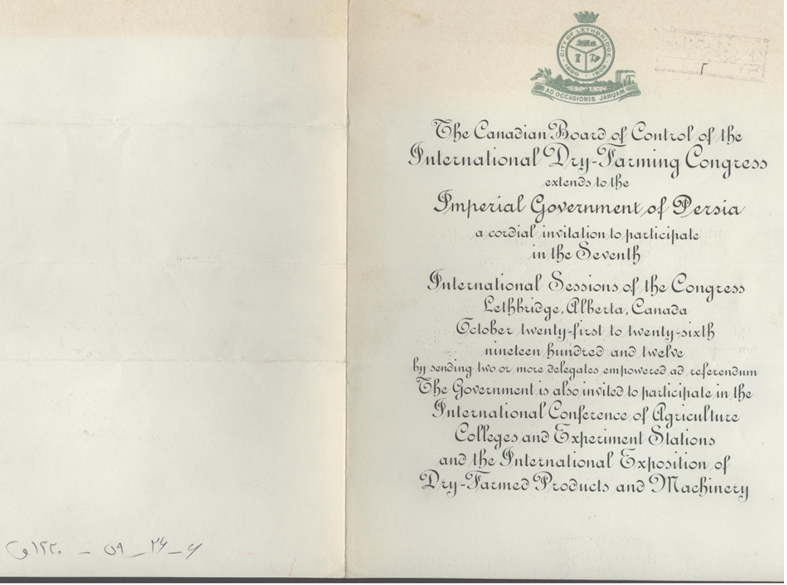 CITY OF LETHBRIDGE
1890 · 1906
AD OCCASIONIS JANUAM
The Canadian Board of Control of the
International Dry-Farming Congress
extends to the
Imperial Government of Persia
a cordial invitation to participate
in the Seventh
International Sessions of the Congress
Lethbridge, Alberta, Canada
October twenty-first to twenty-sixth
nineteen hundred and twelve
by sending two or more delegates empowered ad referendum
The Government is also invited to participate in the
International Conference of Agriculture
Colleges and Experiment Stations
and the International Exposition of
Dry-Farmed Products and Machinery
۱۳۳۰ق - ۵۹ - ۲۶ - ۶